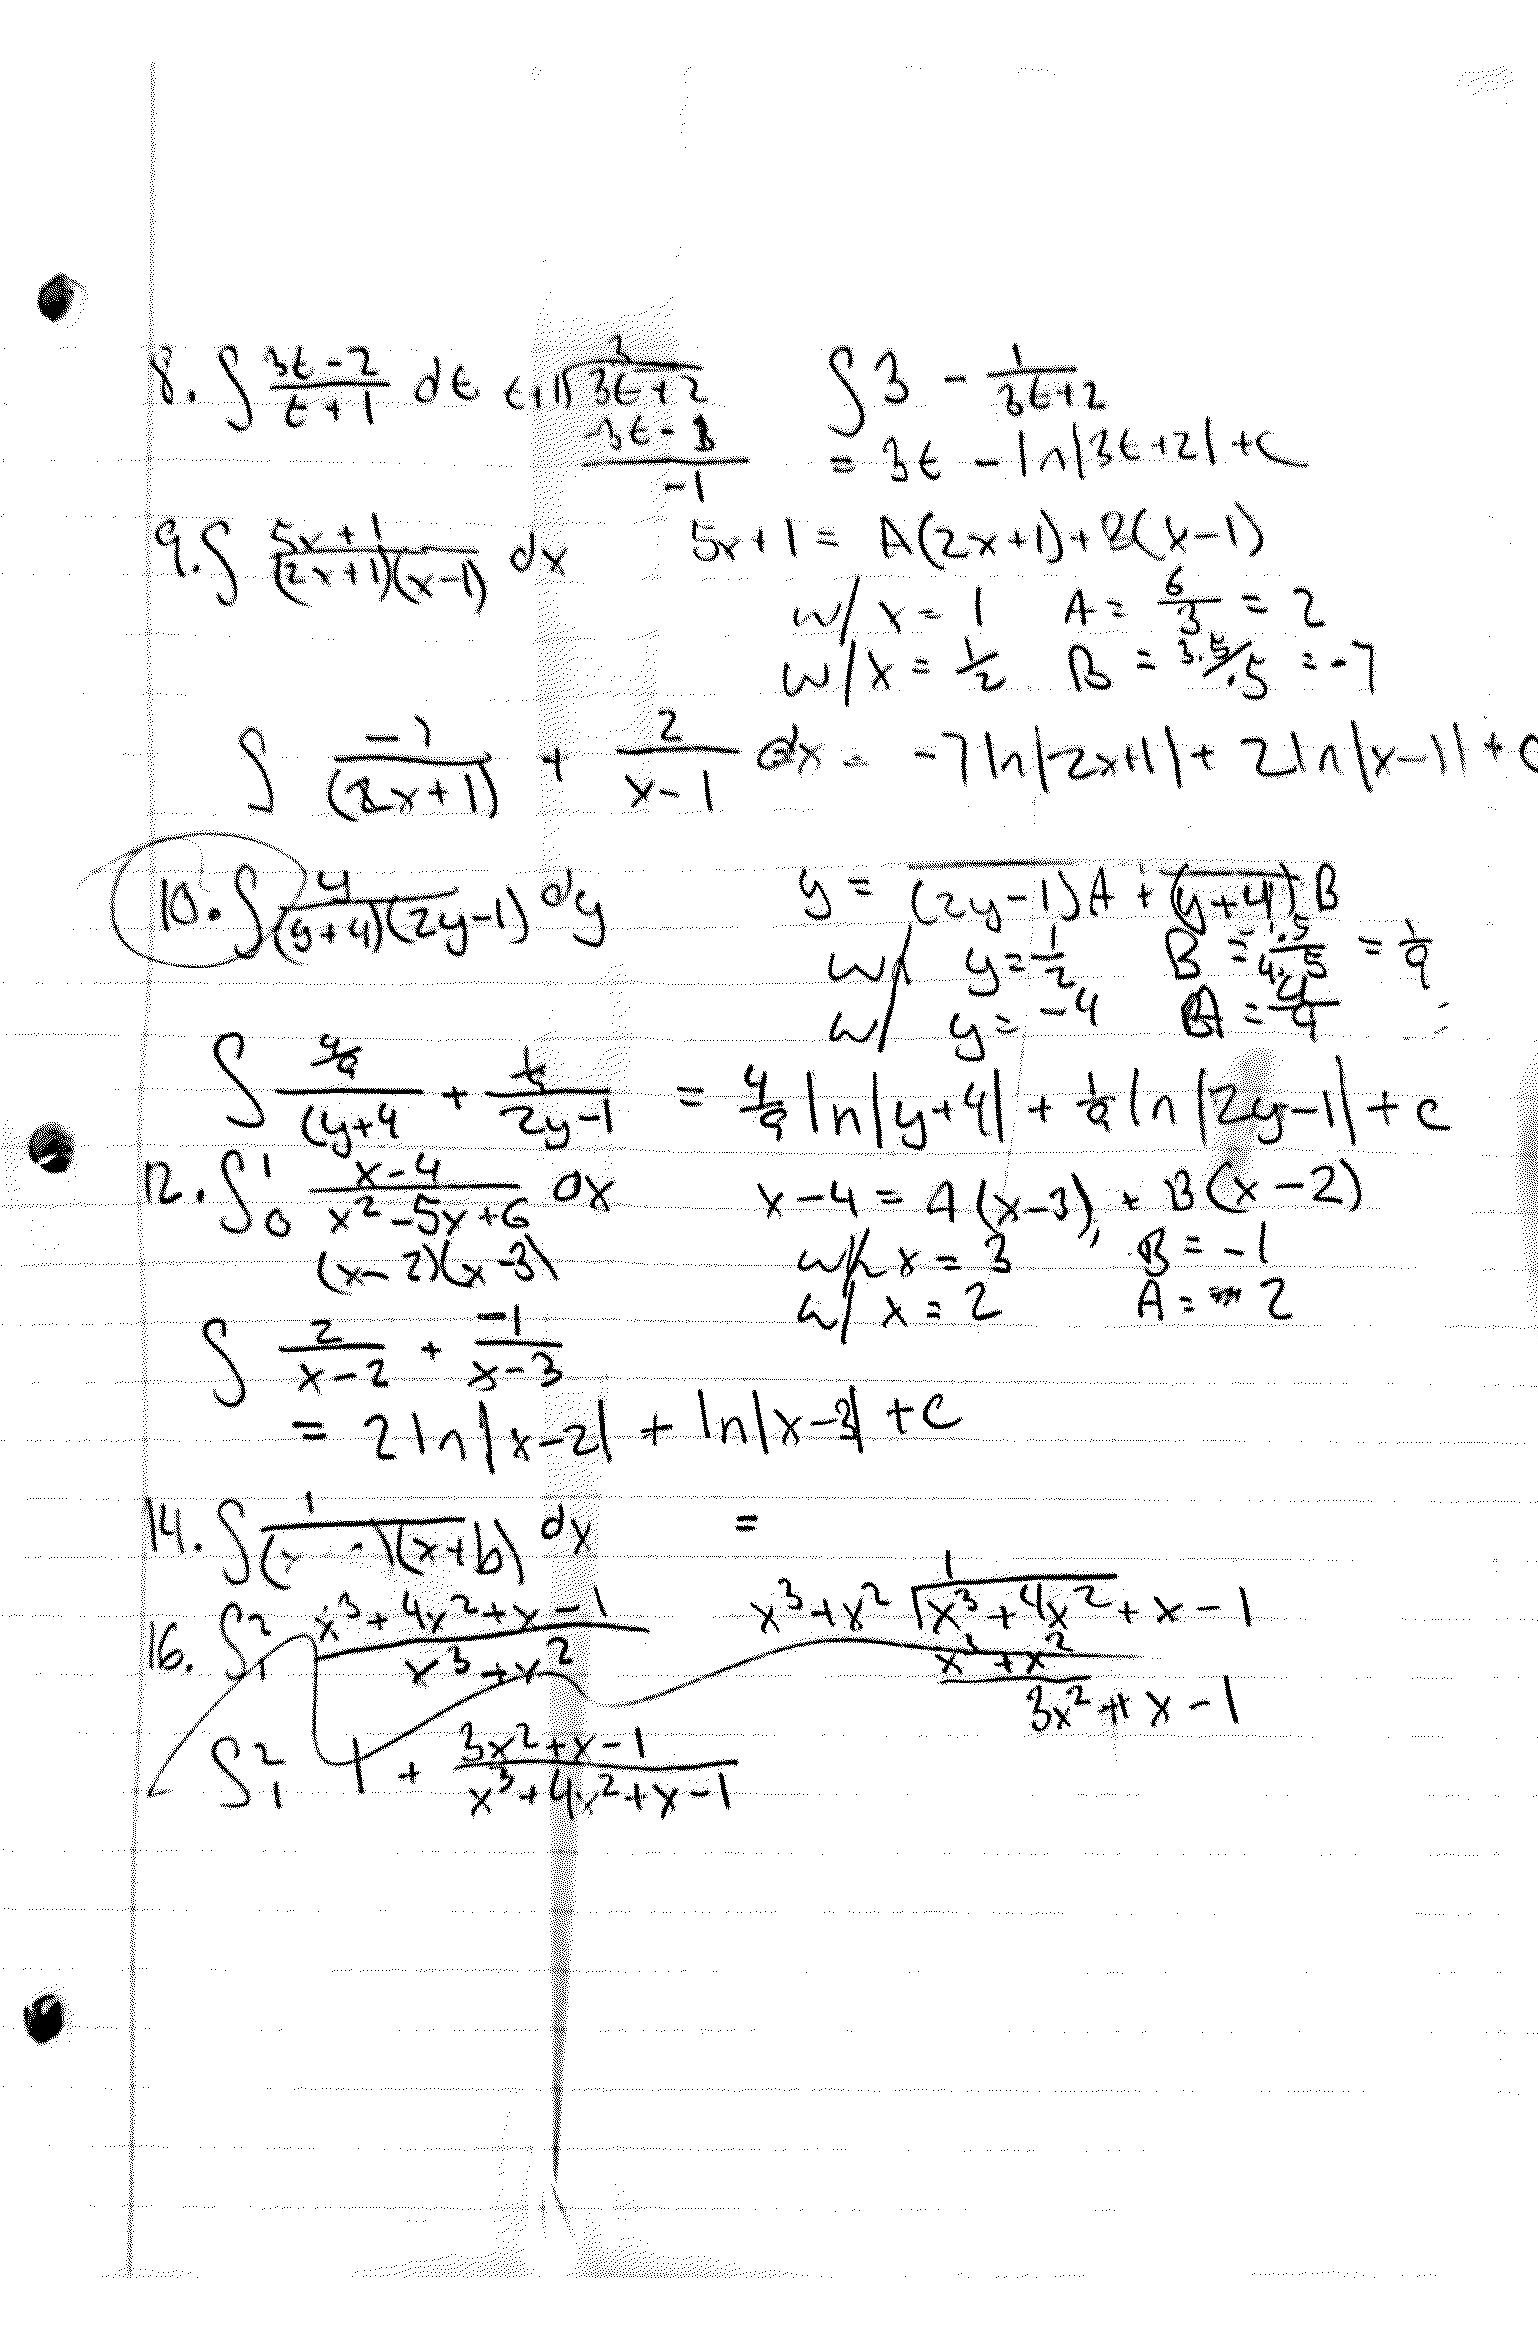 8. ∫ (3t-2)/(t+1) dt   t+1 ) 3t+2   ∫ 3 - 1/(3t+2)
3
3t-3
-1
= 3t - ln|3t+2| + c
9. ∫ (5x+1)/((2x+1)(x-1)) dx   5x+1 = A(2x+1)+B(x-1)
w/ x = 1   A = 6/3 = 2
w/ x = 1/2   B = 3.5/.5 = -7
∫ -7/(2x+1) + 2/(x-1) dx = -7 ln|2x+1| + 2 ln|x-1| + c
10. ∫ y/((y+4)(2y-1)) dy   y = (2y-1)A + (y+4)B
w/ y = 1/2   B = .5/4.5 = 1/9
w/ y = -4   A = 4/9
∫ 4/9/(y+4 + 1/9/(2y-1) = 4/9 ln|y+4| + 1/9 ln|2y-1| + c
12. ∫₀¹ (x-4)/(x²-5x+6) dx   x-4 = A(x-3) + B(x-2)
(x-2)(x-3)   w/ x = 3   B = -1
w/ x = 2   A = 2
∫ 2/(x-2) + -1/(x-3)
= 2 ln|x-2| + ln|x-3| + c
14. ∫ 1/( (x+b) dx =
16. ∫₁² (x³+4x²+x-1)/(x³+x²)   x³+x² ) x³+4x²+x-1
1
x³+x²
3x²+x-1
∫₁² 1 + (3x²+x-1)/(x³+4x²+x-1)